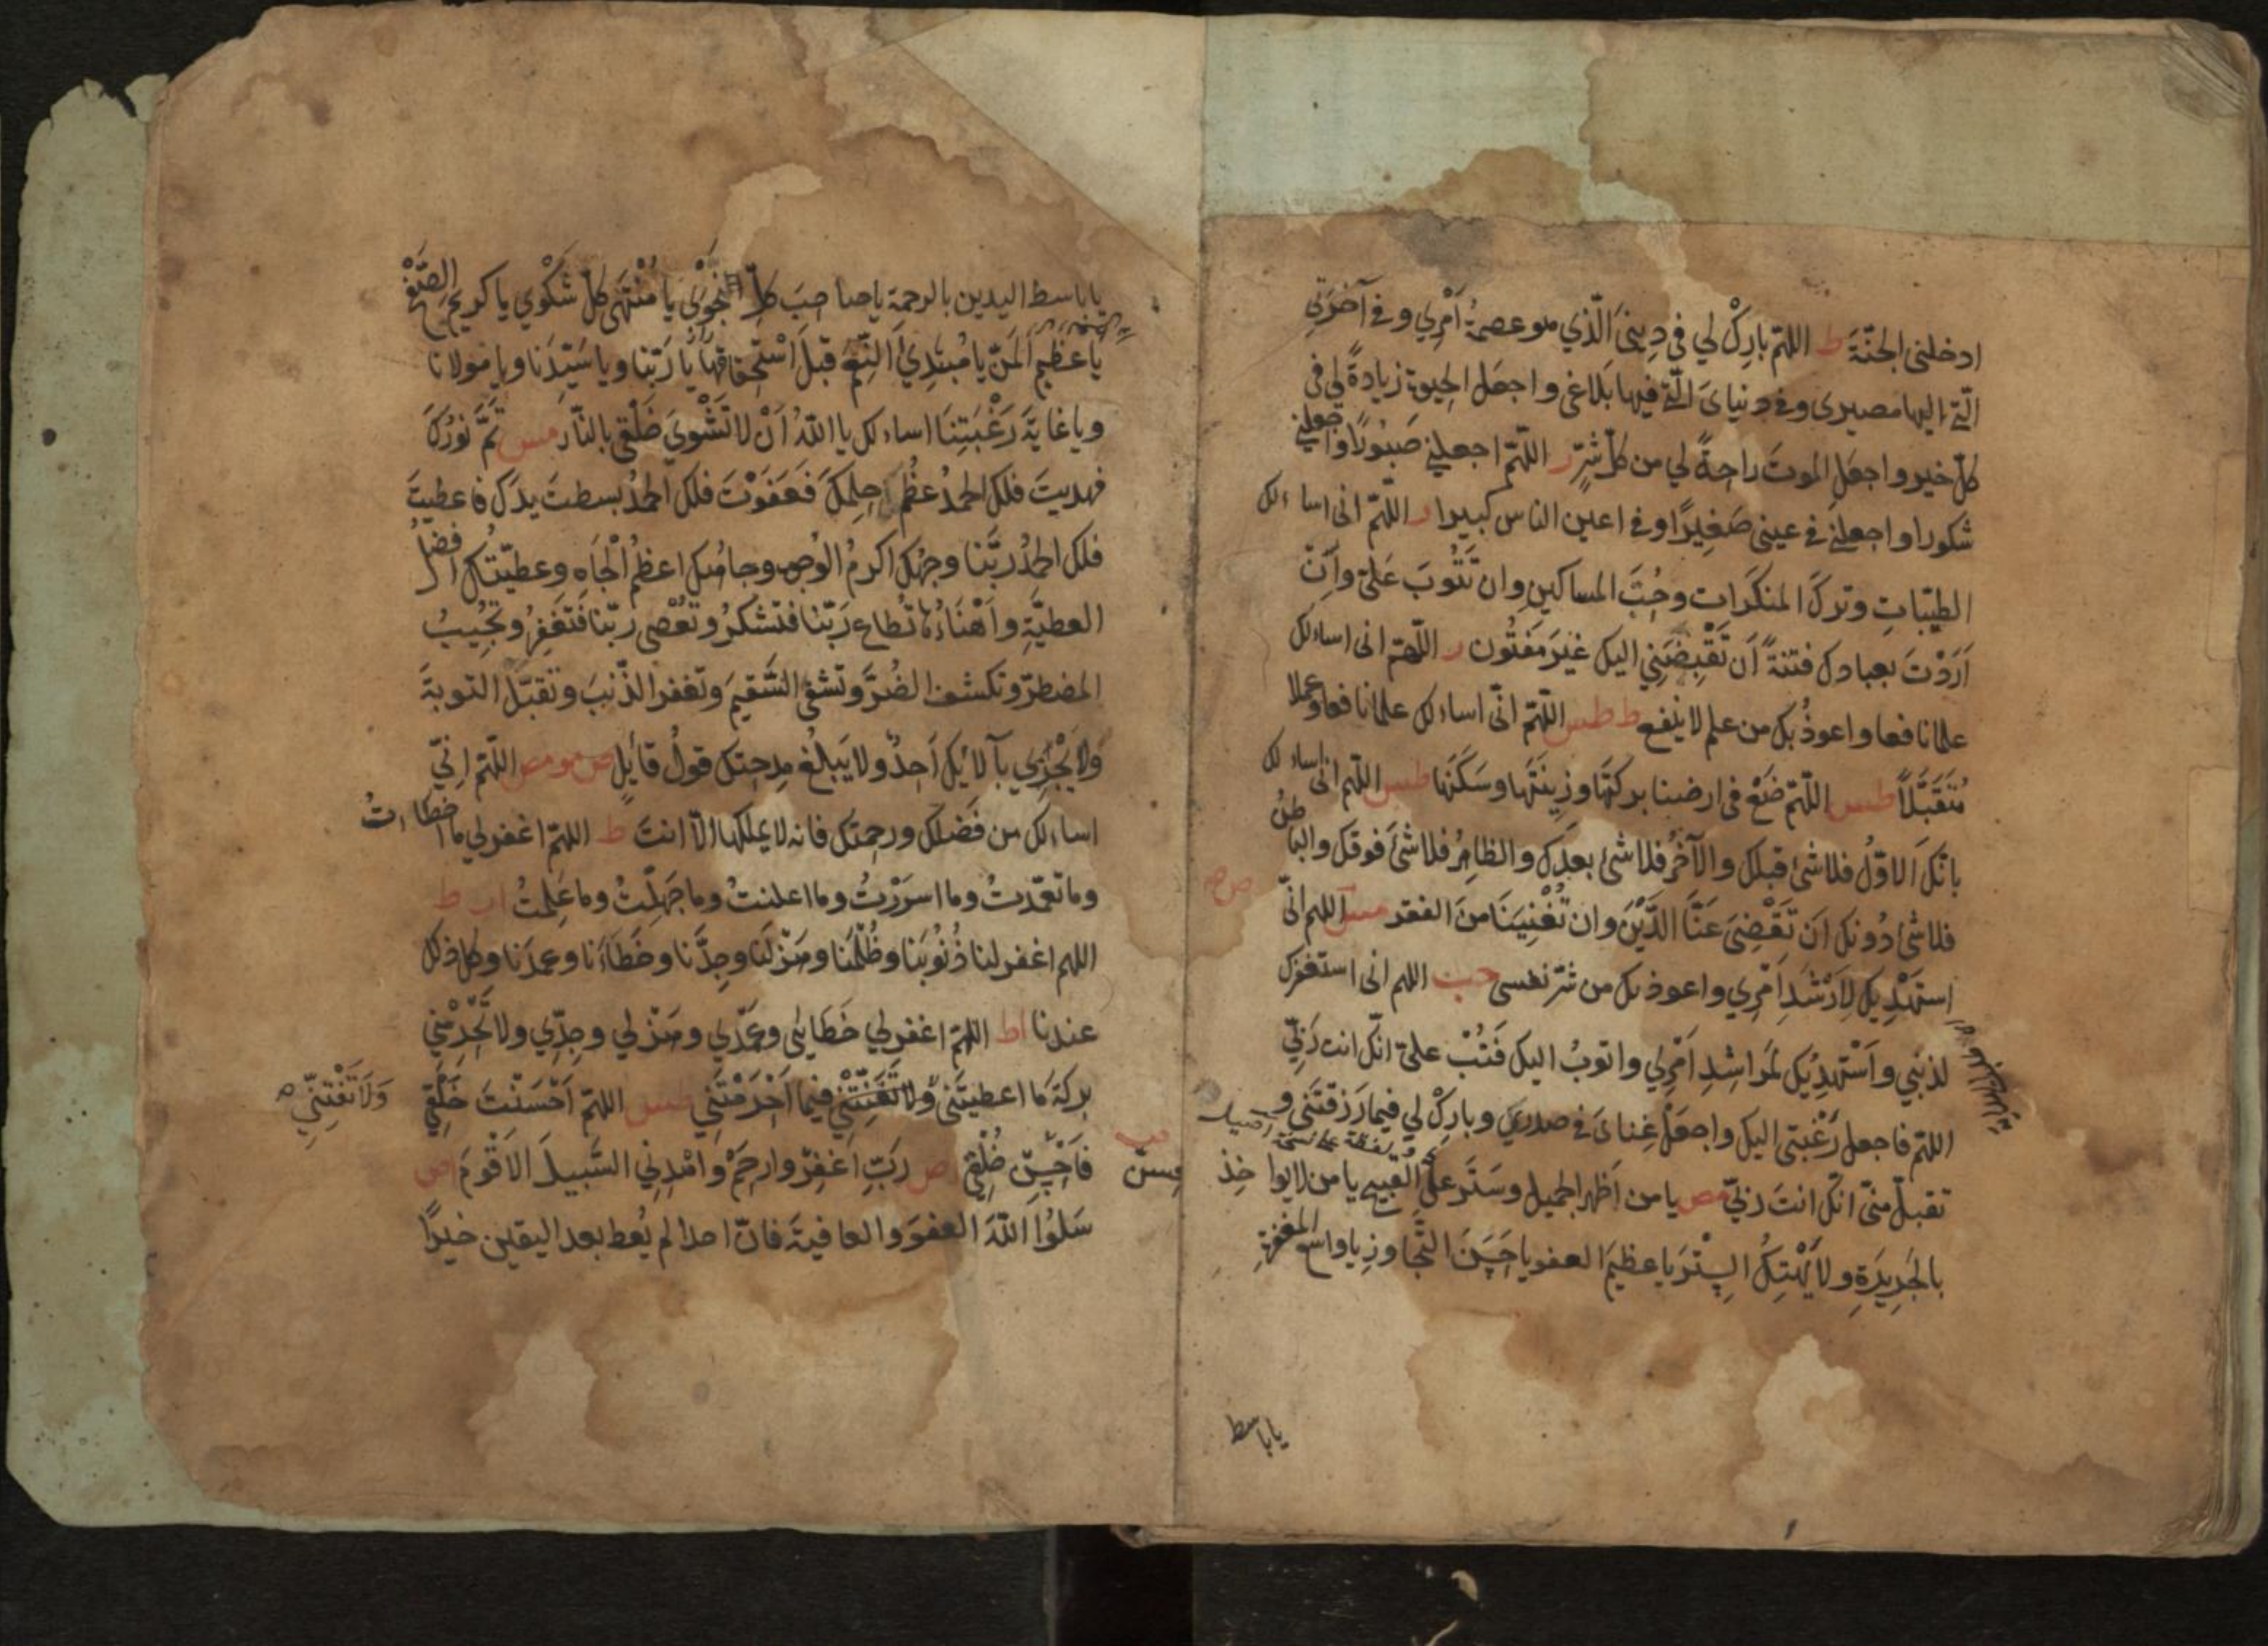 ادخلنى الجنّةَ ط اللهّم بارِكْ لي فى دِينىَ الّذي هو عصمةُ اَمْرِي وفى آخرَتِي
الّتي اليها مصيرى وفى دنياىَ الّتي فيها بَلاغى واجعَل الحيوة زيادةً لي فى
كلّ خيرٍ واجعَلِ الموتَ راحةً لي من كلّ شرٍّ ر اللّهمّ اجعلني صَبُورًا واجعلني
شكورا واجعلني فى عينى صَغِيرًا وفى اعين الناس كبيرا ر اللّهمّ انى اساءلك
الطيّباتِ وتركَ المنكَرات وحُبَّ المساكينِ وان تَتُوبَ عَلَىّ وَاِنْ
اَرَدْتَ بعبادك فتنةً اَن تَقْبِضَنِي اليك غيَر مَفتُون ر اللّهمّ انى اساءلك
علما نافعا واعوذُ بك من علم لا ينفع ط طس اللّهمّ انّى اساءلك علما نافعا وعملا
مُتقَبَّلاً طس اللّهمّ ضَعْ فى ارضنا بركتَها وزِينَتَها وسَكَنَها طس اللّهم انى اساءلك
بانّكَ الاوّلُ فلا شئ قبلك والآخرُ فلا شئ بعدك والظاهِرُ فلا شئَ فوقك والباطنُ
فلا شئ دُونك اَن تَقْضِىَ عَنَّا الدَّيْنَ وان تُغْنِيَنَا منَ الفقر مس اللهم انّى
استهْدِيك لِاَرْشَدِ اَمْرِي واعوذ بك من شرّ نفسى حب اللهم انى استغفرك
لذنبي واَسْتهدِيُك لمَراشِدِ اَمْرِي واتوبُ اليك فَتُبْ علىّ انّك انت رَبّي
اللهّم فاجعل رَغْبَتى اليك واجعَلْ غِناىَ فى صدرِي وبارِكْ لي فيما رَزقتَنى و
تقبلْ منّى انّك انتَ ربّي مص يا من اَظْهر الجميل وسَتَر علىّ القَبيح يا من لا يواخِذ
بالجَرِيرَةِ ولا يَهْتِكُ السِتْرَ يا عظيمَ العفو يا حَسَنَ التَّجاوزِ يا واسع المغفرةِ
يا باسط
يا باسط اليدين بالرحمة يا صاحِبَ كلِّ نَجْوَى يا مُنْتَهَى كلّ شَكْوي يا كريم الصَّفْحِ
يا عَظِيمَ المَنّ يا مُبتدِئَ النِّعَم قبلَ اسْتحقاقها يا رَبّنا ويا سَيّدَنا ويا مولانا
ويا غايَةَ رَغْبَتِنَا اساءلك يا اللّهُ اَنْ لا تَشْوِيَ خَلْقى بالنّار مص تَمَّ نورُكَ
فهديتَ فلك الحمدُ عَظُمَ حِلمكَ فَعَفَوْتَ فلك الحمدُ بسطتَ يدَك فاعطيتَ
فلك الحمدُ ربَّنا وجهُك اكرمُ الوُجوه وجاهُك اعظمُ الْجَاهِ وعطيّتُك افضلُ
العطيَّةِ واَهْنَاءُها تُطاع رَبّنا فتشكُرُ وتُعْصى ربّنا فَتَغفِرُ وتُجِيبُ
المضطرّ وتكشف الضُرَّ وتَشفى السَّقيمَ وتغفر الذّنبَ وتقبَل التوبةَ
ولا يَجْزِي بآلائِك اَحدٌ ولا يَبلُغ مِدحتك قولُ قائِلٍ ص مو مص اللّهّم اِنّي
اساءلك من فَضلك ورحمتك فانه لا يملكها الاّ انتَ ط اللهمّ اغفر لي ما اخطاءتُ
وما تعمّدتُ وما اسرَرْتُ وما اعلنتُ وما جَهِلْتُ وما عَلِمتُ ا ر ط
اللهم اغفر لنا ذُنُوبَنا وظُلْمَنا وهَزْلَنا وجِدَّنا وخَطَاءَنا وعمدَنا وكل ذلك
عندنا اط اللهّم اغفر لي خَطَايئى وعَمْدِي وهَزْلي وجِدّي ولا تَحْرِمْني
بركةَ ما اعطيتَنى ولا تَفْتِنّى فيما اَحْرَمْتَني طس اللهمّ اَحْسَنْتَ خَلْقي
وَلَا تَفْتِنِّي
فَاَحْسِنْ خُلْقي ا ص رَبِّ اغفِرْ وارحَمْ واهْدِنِي السَّبيلَ الاَقْومَ اص
سَلُوا اللّهَ العفوَ والعافيةَ فانّ احدا لم يُعط بعد اليقين خيرًا